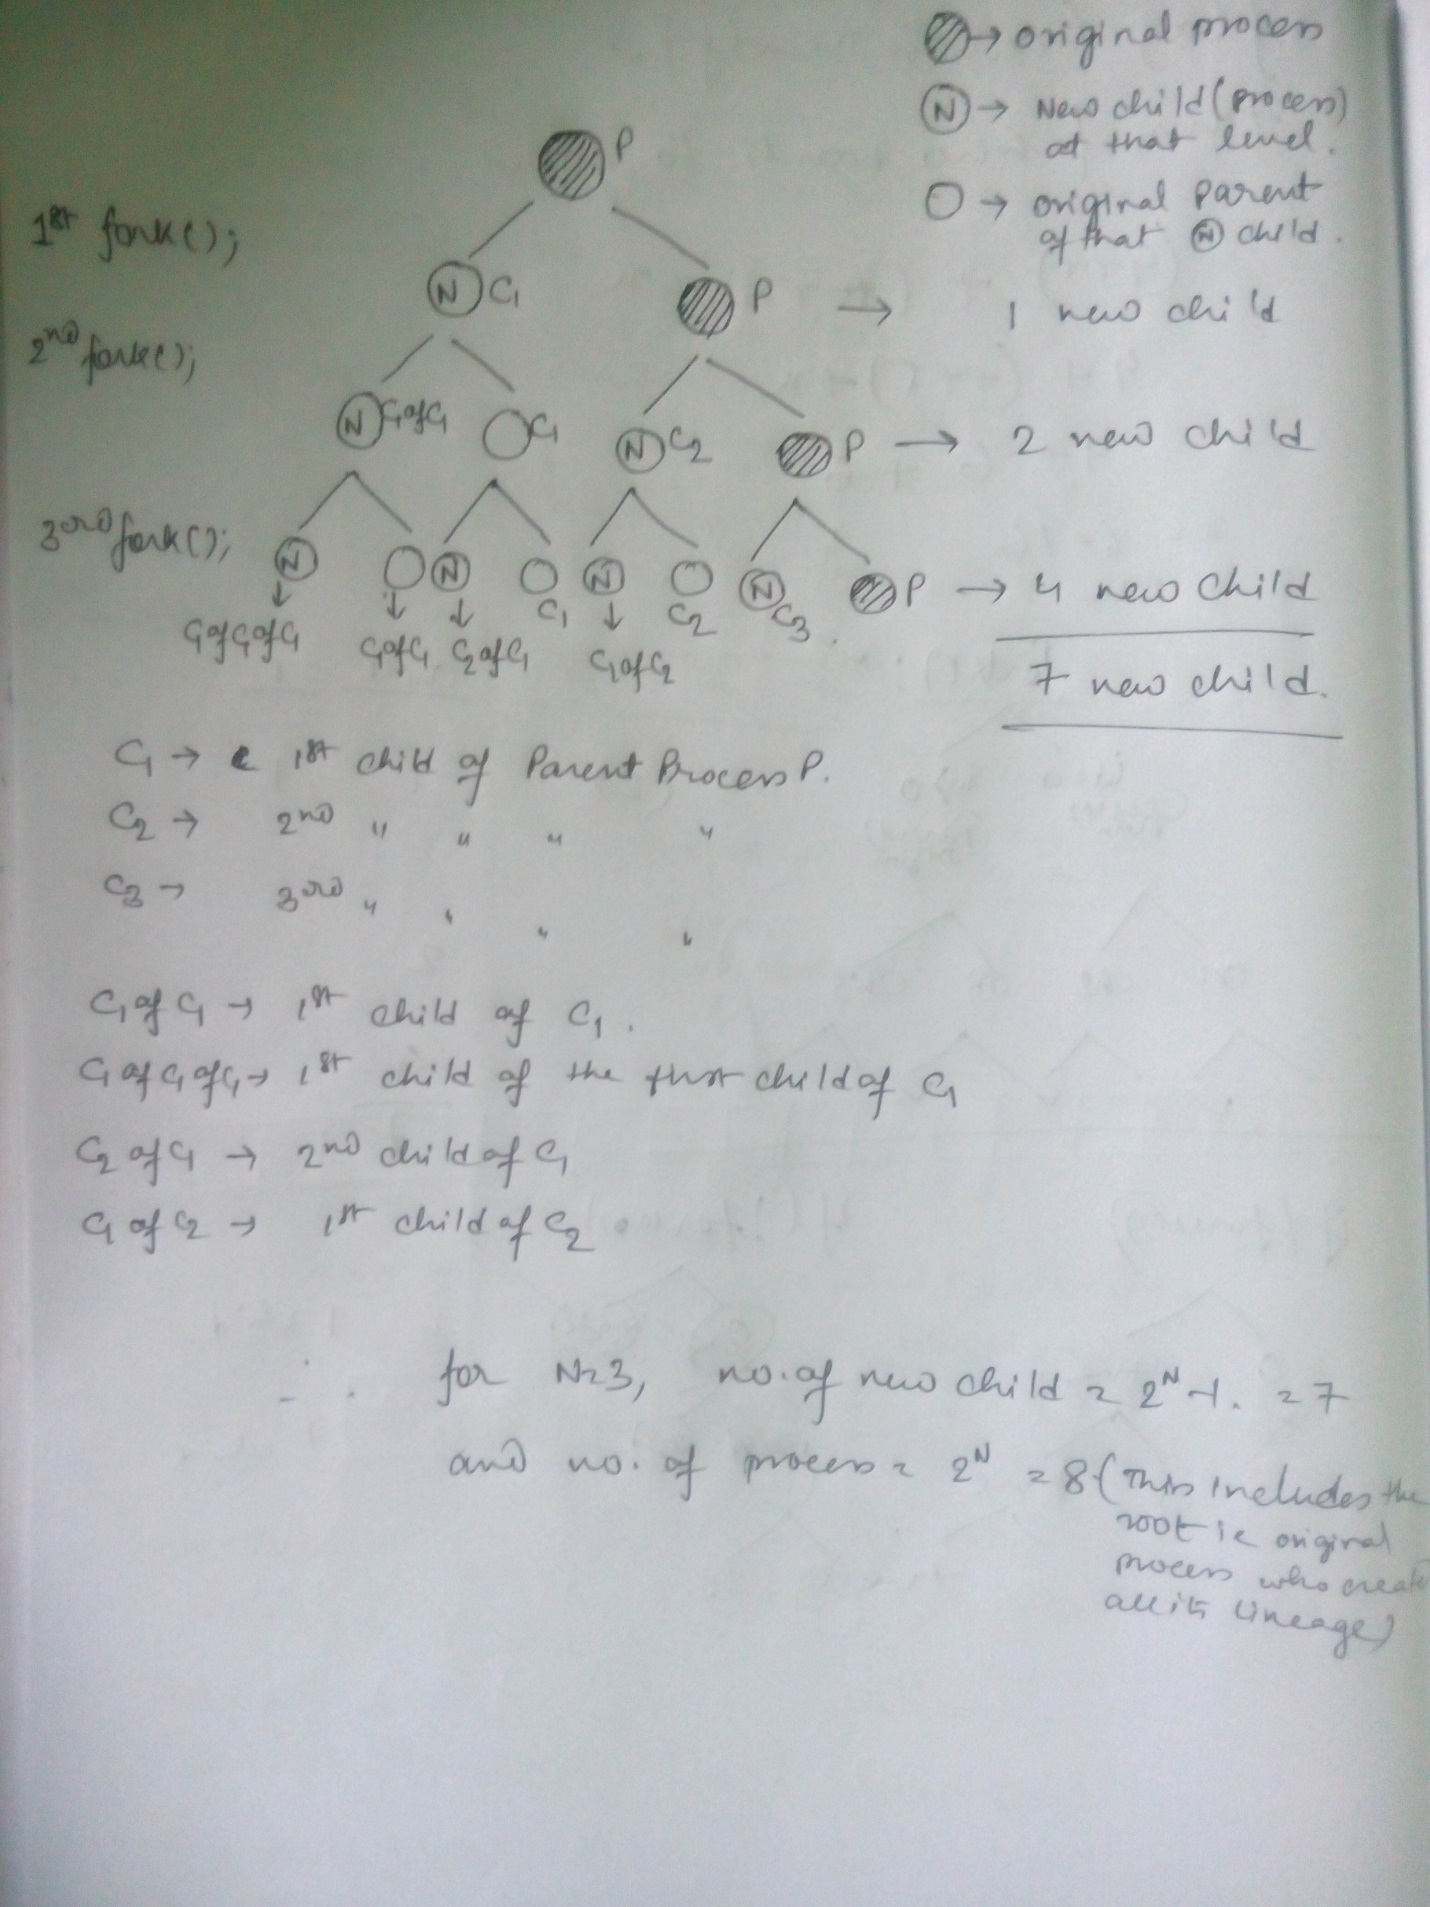 → original process
N → New child (process)
at that level.
→ original parent
of that N child.
P
1st fork();
N C1 P → 1 new child
2nd fork();
N C1 of C1 C1 N C2 P → 2 new child
3rd fork();
N N N N P → 4 new child
C1 C2 C3
C1 of C1 of C1 C1 of C1 C2 of C1 C1 of C2
7 new child.
C1 → 1st child of Parent Process P.
C2 → 2nd " " " "
C3 → 3rd " " " "
C1 of C1 → 1st child of C1.
C1 of C1 of C1 → 1st child of the first child of C1
C2 of C1 → 2nd child of C1
C1 of C2 → 1st child of C2
for N=3, no. of new child = 2^N-1. = 7
and no. of process = 2^N = 8 (This includes the
root ie original
process who create
all its lineage)